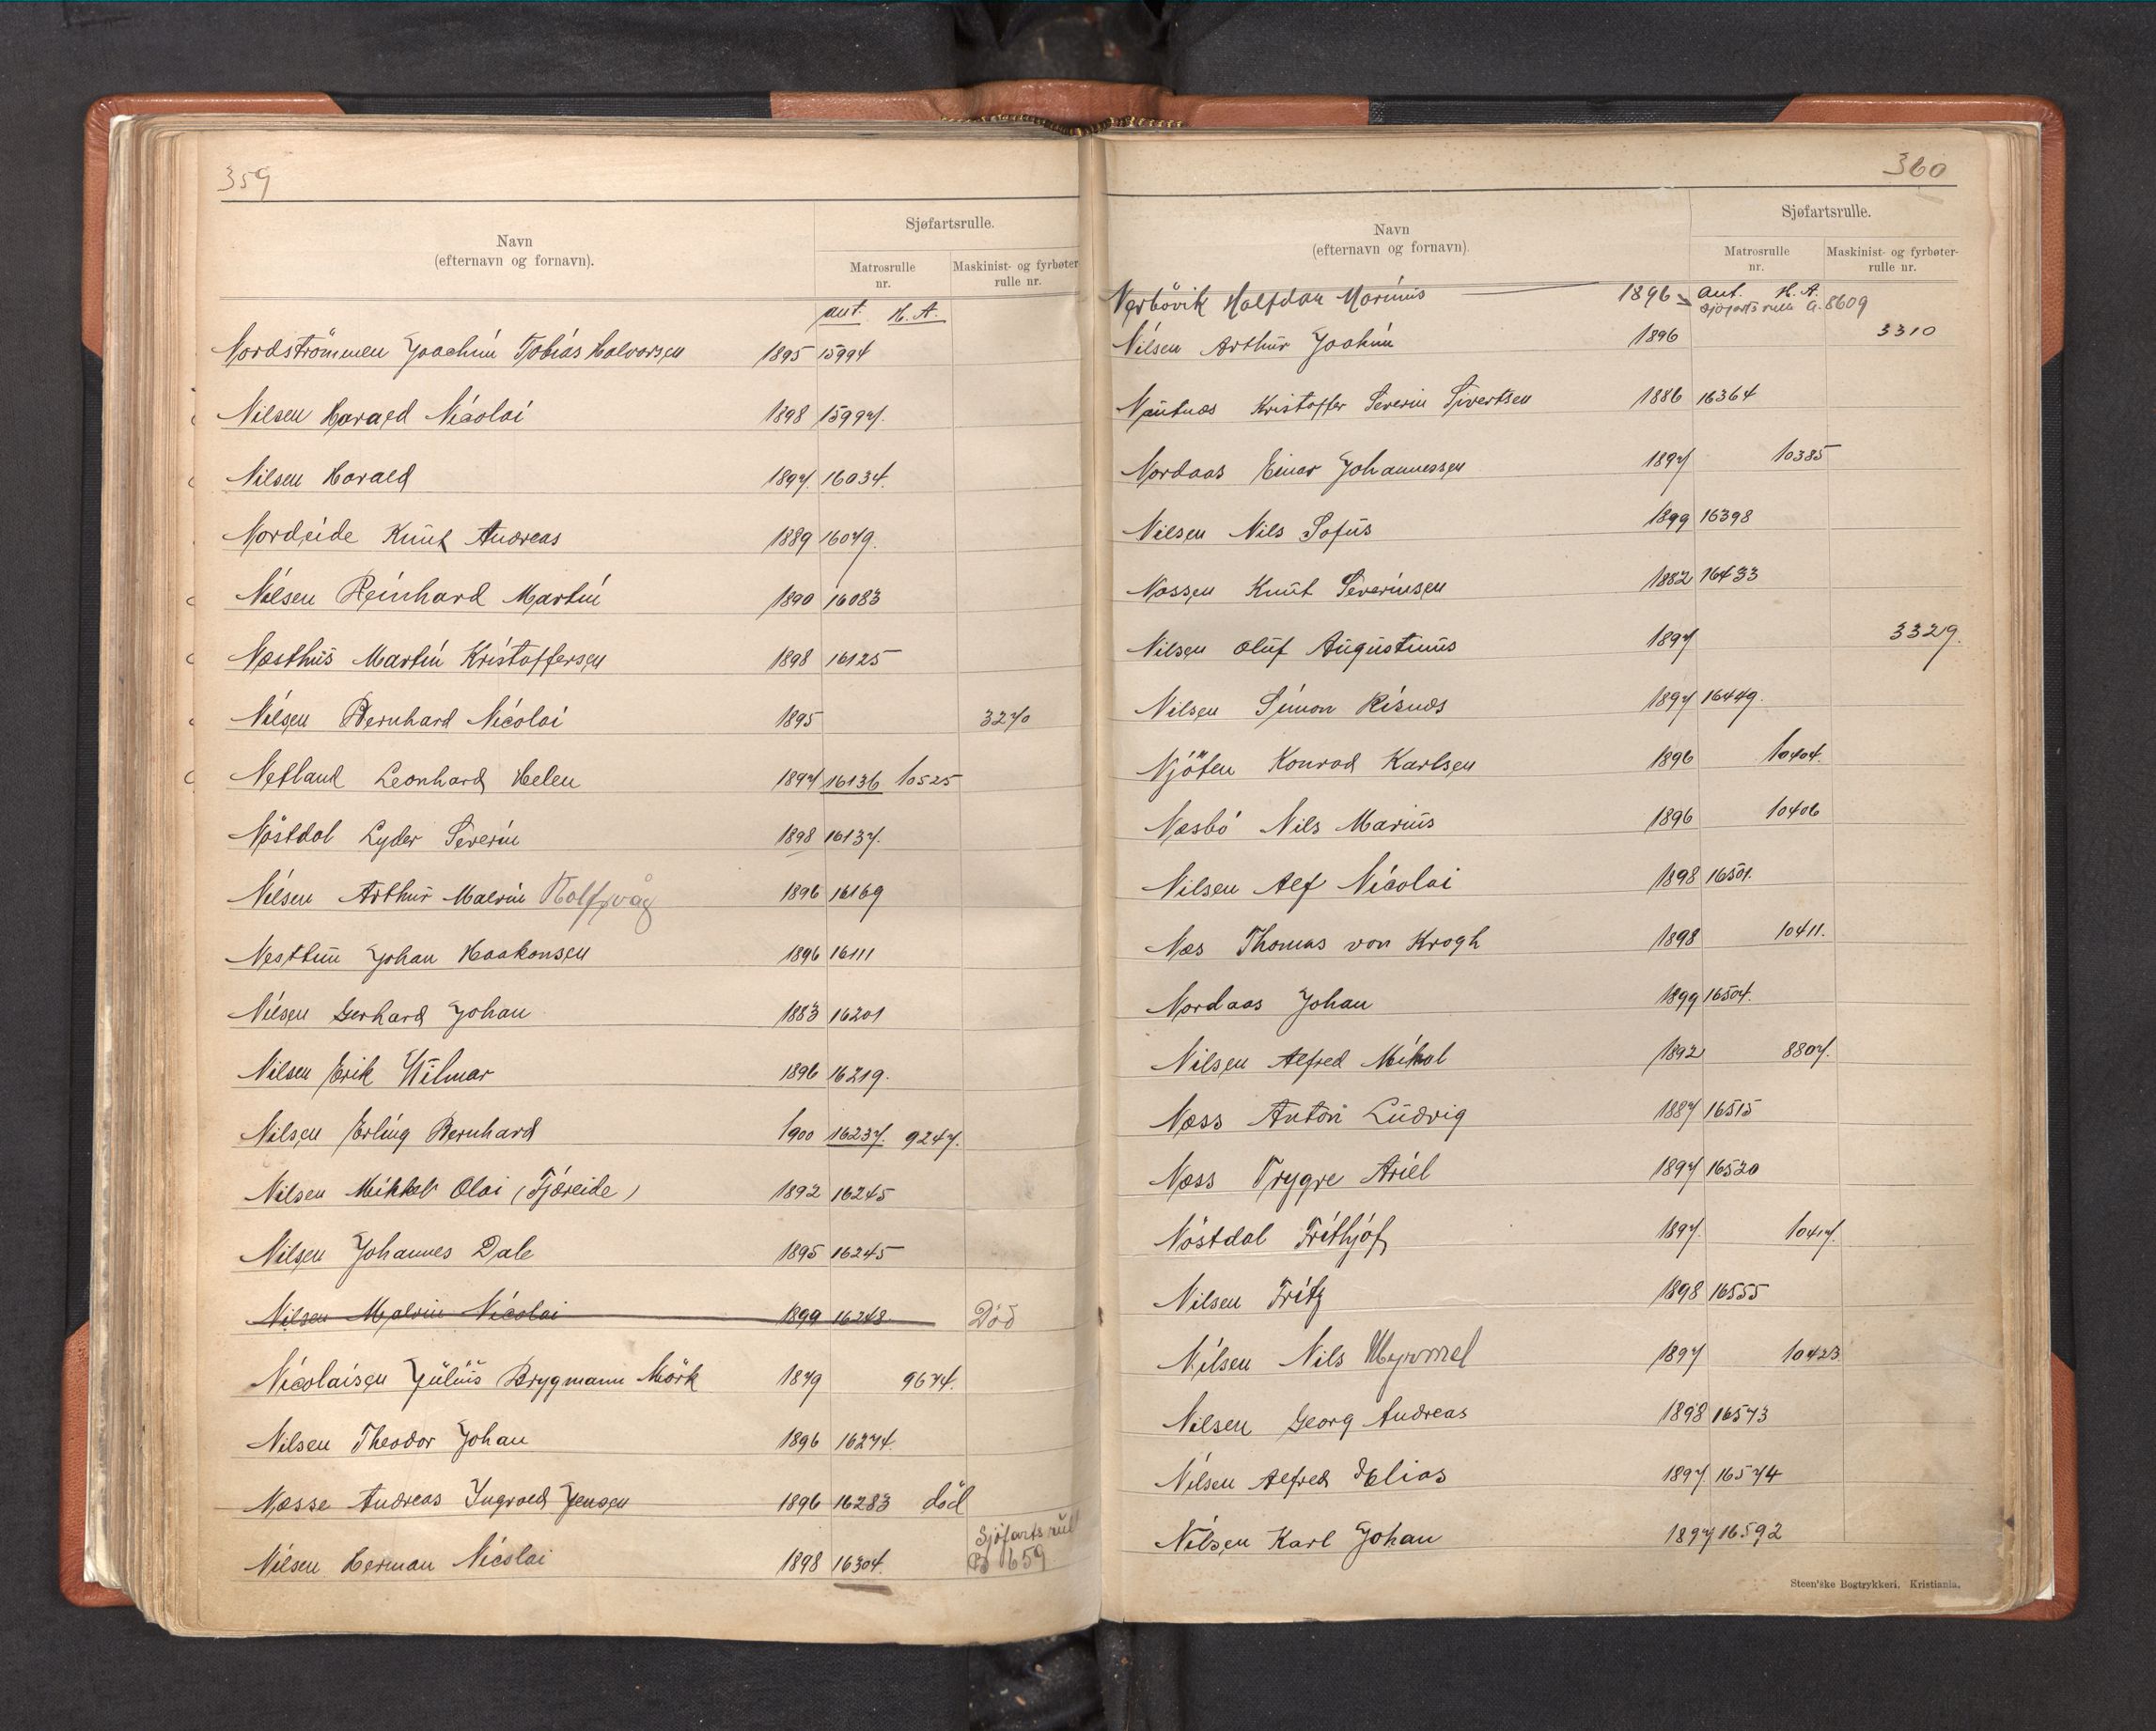 359
Navn
(efternavn og fornavn).
Sjøfartsrulle.
Matrosrulle
nr.
Maskinist- og fyrbøter-
rulle nr.
ant. H. A.
Nordströmmen Joachim Tobias Halvorsen 1895 15994
Nilsen Harald Nicolai 1898 15997.
Nilsen Harald 1897. 16034.
Nordeide Knut Andreas 1889 16079.
Nilsen Reinhard Martin 1890 16083
Næsthus Martin Kristoffersen 1898 16125
Nilsen Bernhard Nicolai 1895 3270
Netland Leonhard Helen 1897 16136 10525
Nöstdal Lyder Severin 1898 16137.
Nilsen Arthur Malvin Rolfsvåg 1896 16169
Nesttun Johan Haakonsen 1896 16111
Nilsen Gerhard Johan 1883 16201
Nilsen Erik Wilmar 1896 16219.
Nilsen Erling Bernhard 1900 16237. 9247.
Nilsen Mikkel Olai (Tjæreide) 1892 16245
Nilsen Johannes Dale 1895 16245
Nilsen Malvin Nicolai 1899 16248. Död
Nicolaisen Julius Brygmann Mörk 1879 9674.
Nilsen Theodor Johan 1896 16274.
Næsse Andreas Ingvald Jensen 1896 16283 död
Nilsen Herman Nicolai 1898 16304. Sjöfartsrull
B 659
360
Navn
(efternavn og fornavn).
Sjøfartsrulle.
Matrosrulle
nr.
Maskinist- og fyrbøter-
rulle nr.
Nerbövik Halfdan Marinus 1896 ant. H. A.
Sjöfartsrulle A. 8609
Nilsen Arthur Joakim 1896 3310
Nautnes Kristoffer Severin Sivertsen 1886 16364
Nordaas Einar Johannessen 1897 10385
Nilsen Nils Sofus 1899 16398
Nossen Knut Severinsen 1882 16433
Nilsen Oluf Augustinus 1897 3329.
Nilsen Simon Risnes 1897 16449.
Njöten Konrad Karlsen 1896 10404.
Næsbö Nils Marius 1896 10406
Nilsen Alf Nicolai 1898 16501.
Næs Thomas von Krogh 1898 10411.
Nordaas Johan 1899 16504.
Nilsen Alfred Mikal 1892 8807.
Næss Anton Ludvig 1887 16515
Næss Trygve Ariel 1897 16520
Nöstdal Frithjof 1897. 10417.
Nilsen Fritz 1898 16555
Nilsen Nils Myrmel 1897 10423
Nilsen Georg Andreas 1898 16573
Nilsen Alfred Elias 1897. 16574
Nilsen Karl Johan 1897 16592
Steen'ske Bogtrykkeri, Kristiania.